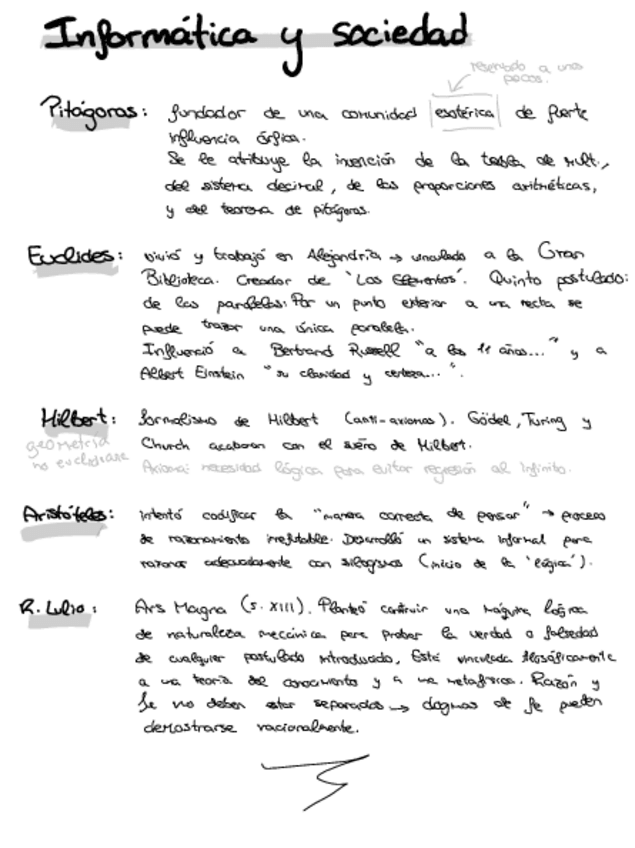 Informática y sociedad
reservado a unos
pocos.
Pitágoras: fundador de una comunidad esotérica de fuerte
influencia órfica.
Se le atribuye la invención de la tabla de mult.,
del sistema decimal, de las proporciones aritméticas,
y del teorema de pitágoras.
Euclides: vivió y trabajó en Alejandría → vinculado a la Gran
Biblioteca. Creador de 'Los Elementos'. Quinto postulado:
de las paralelas: Por un punto exterior a una recta se
puede trazar una única paralela.
Influenció a Bertrand Russell "a los 11 años..." y a
Albert Einstein "su claridad y certeza...".
Hilbert: formalismo de Hilbert (anti-axiomas). Gödel, Turing y
geometría
Church acabaron con el sueño de Hilbert.
no euclidiana
Axioma: necesidad lógica para evitar regresión al infinito.
Aristóteles: intentó codificar la "manera correcta de pensar" → proceso
de razonamiento irrefutable. Desarrolló un sistema informal para
razonar adecuadamente con silogismos (inicio de la 'lógica').
R. Lulio: Ars Magna (s. XIII). Planteó construir una máquina lógica
de naturaleza mecánica para probar la verdad o falsedad
de cualquier postulado introducido. Está vinculada filosóficamente
a una teoría del conocimiento y a una metafísica. Razón y
fe no deben estar separados → dogmas de fe pueden
demostrarse racionalmente.